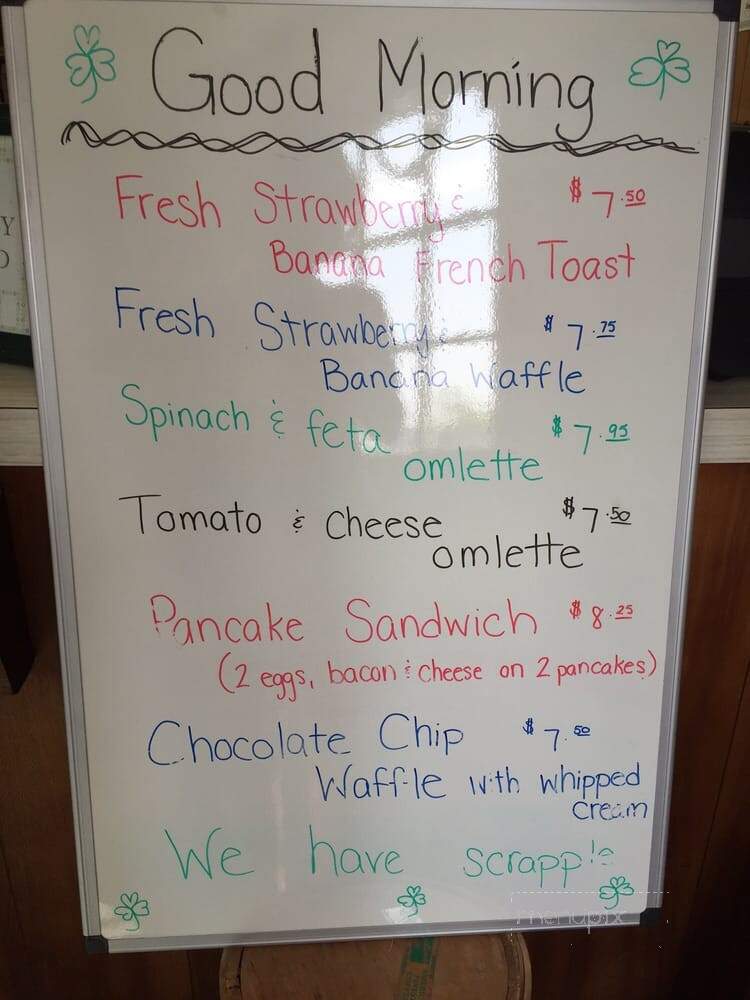 Good Morning
Fresh Strawberry & $7.50
Banana French Toast
Fresh Strawberry & $7.75
Banana Waffle
Spinach & feta $7.95
omlette
Tomato & cheese $7.50
omlette
Pancake Sandwich $8.25
(2 eggs, bacon & cheese on 2 pancakes)
Chocolate Chip $7.50
Waffle with whipped
cream
We have scrapple
menupix
Y